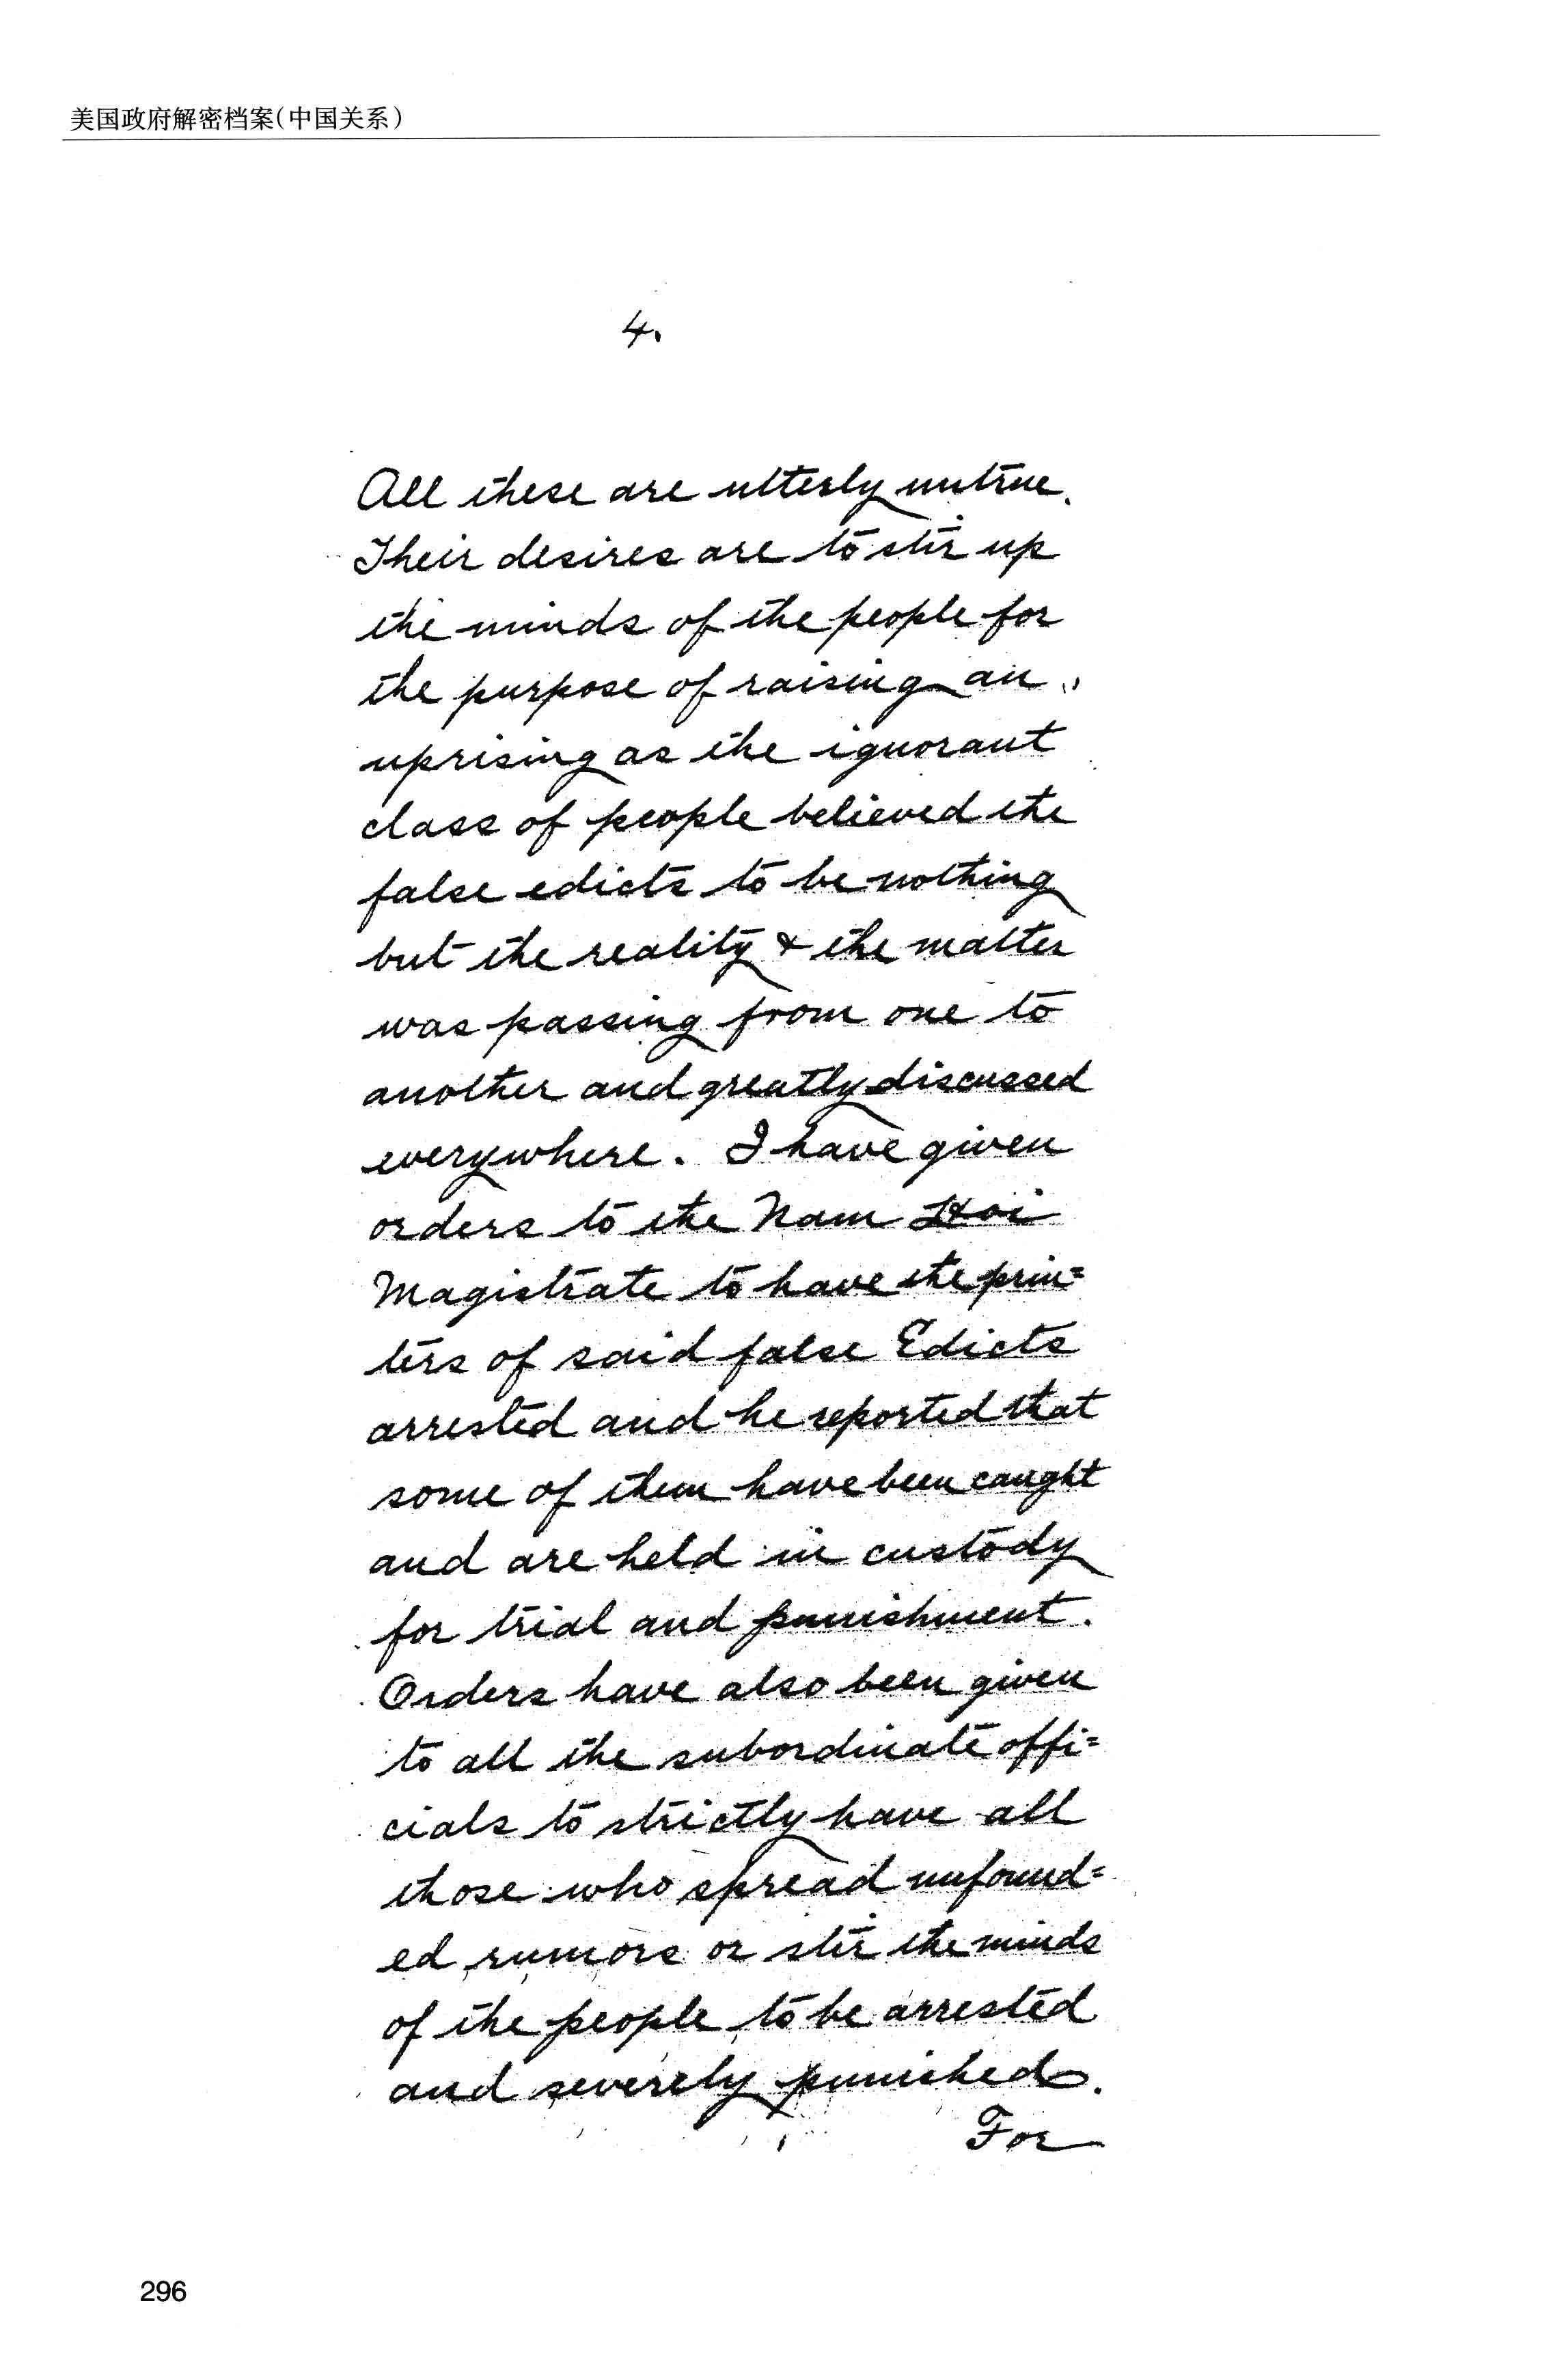 美国政府解密档案(中国关系)
4.
All these are utterly untrue.
Their desires are to stir up
the minds of the people for
the purpose of raising an
uprising as the ignorant
class of people believed the
false edicts to be nothing
but the reality & the matter
was passing from one to
another and greatly discussed
everywhere. I have given
orders to the Nam Hoi
Magistrate to have the prin=
ters of said false Edicts
arrested and he reported that
some of them have been caught
and are held in custody
for trial and punishment.
Orders have also been given
to all the subordinate offi=
cials to strictly have all
those who spread unfound=
ed rumors or stir the minds
of the people to be arrested
and severely punished.
For
296